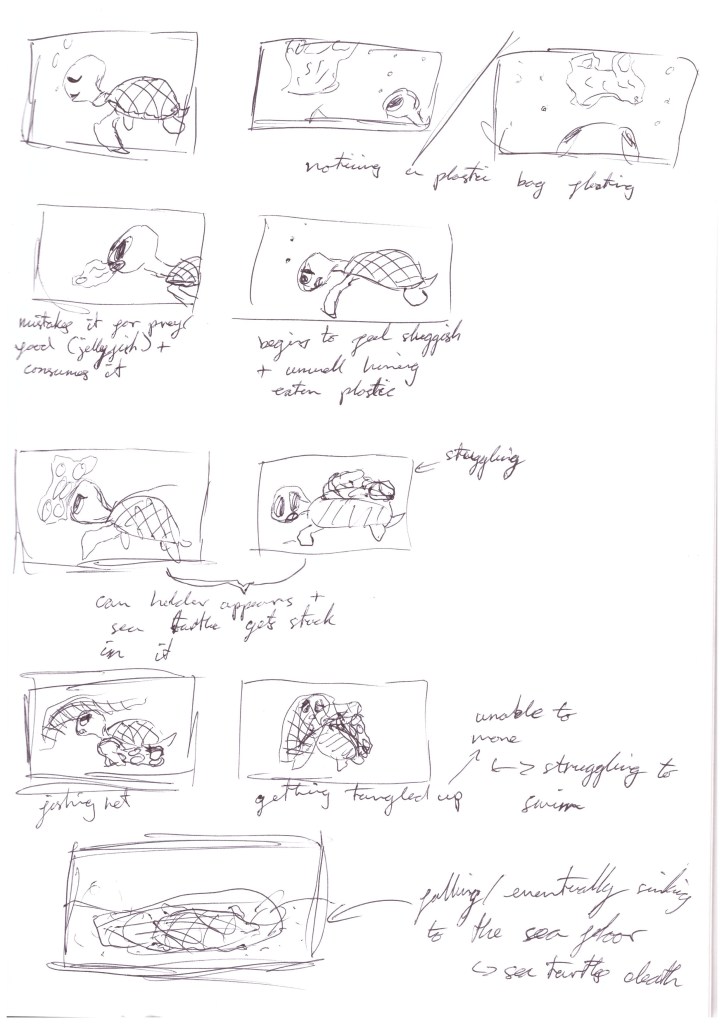 noticing a plastic bag floating
mistakes it for prey/
food (jellyfish) +
consumes it
begins to feel sluggish
+ unwell having
eaten plastic
struggling
can holder appears +
sea turtle gets stuck
in it
fishing net
getting tangled up
unable to
move
↳ struggling to
swim
falling/ eventually sinking
to the sea floor
↳ sea turtle death